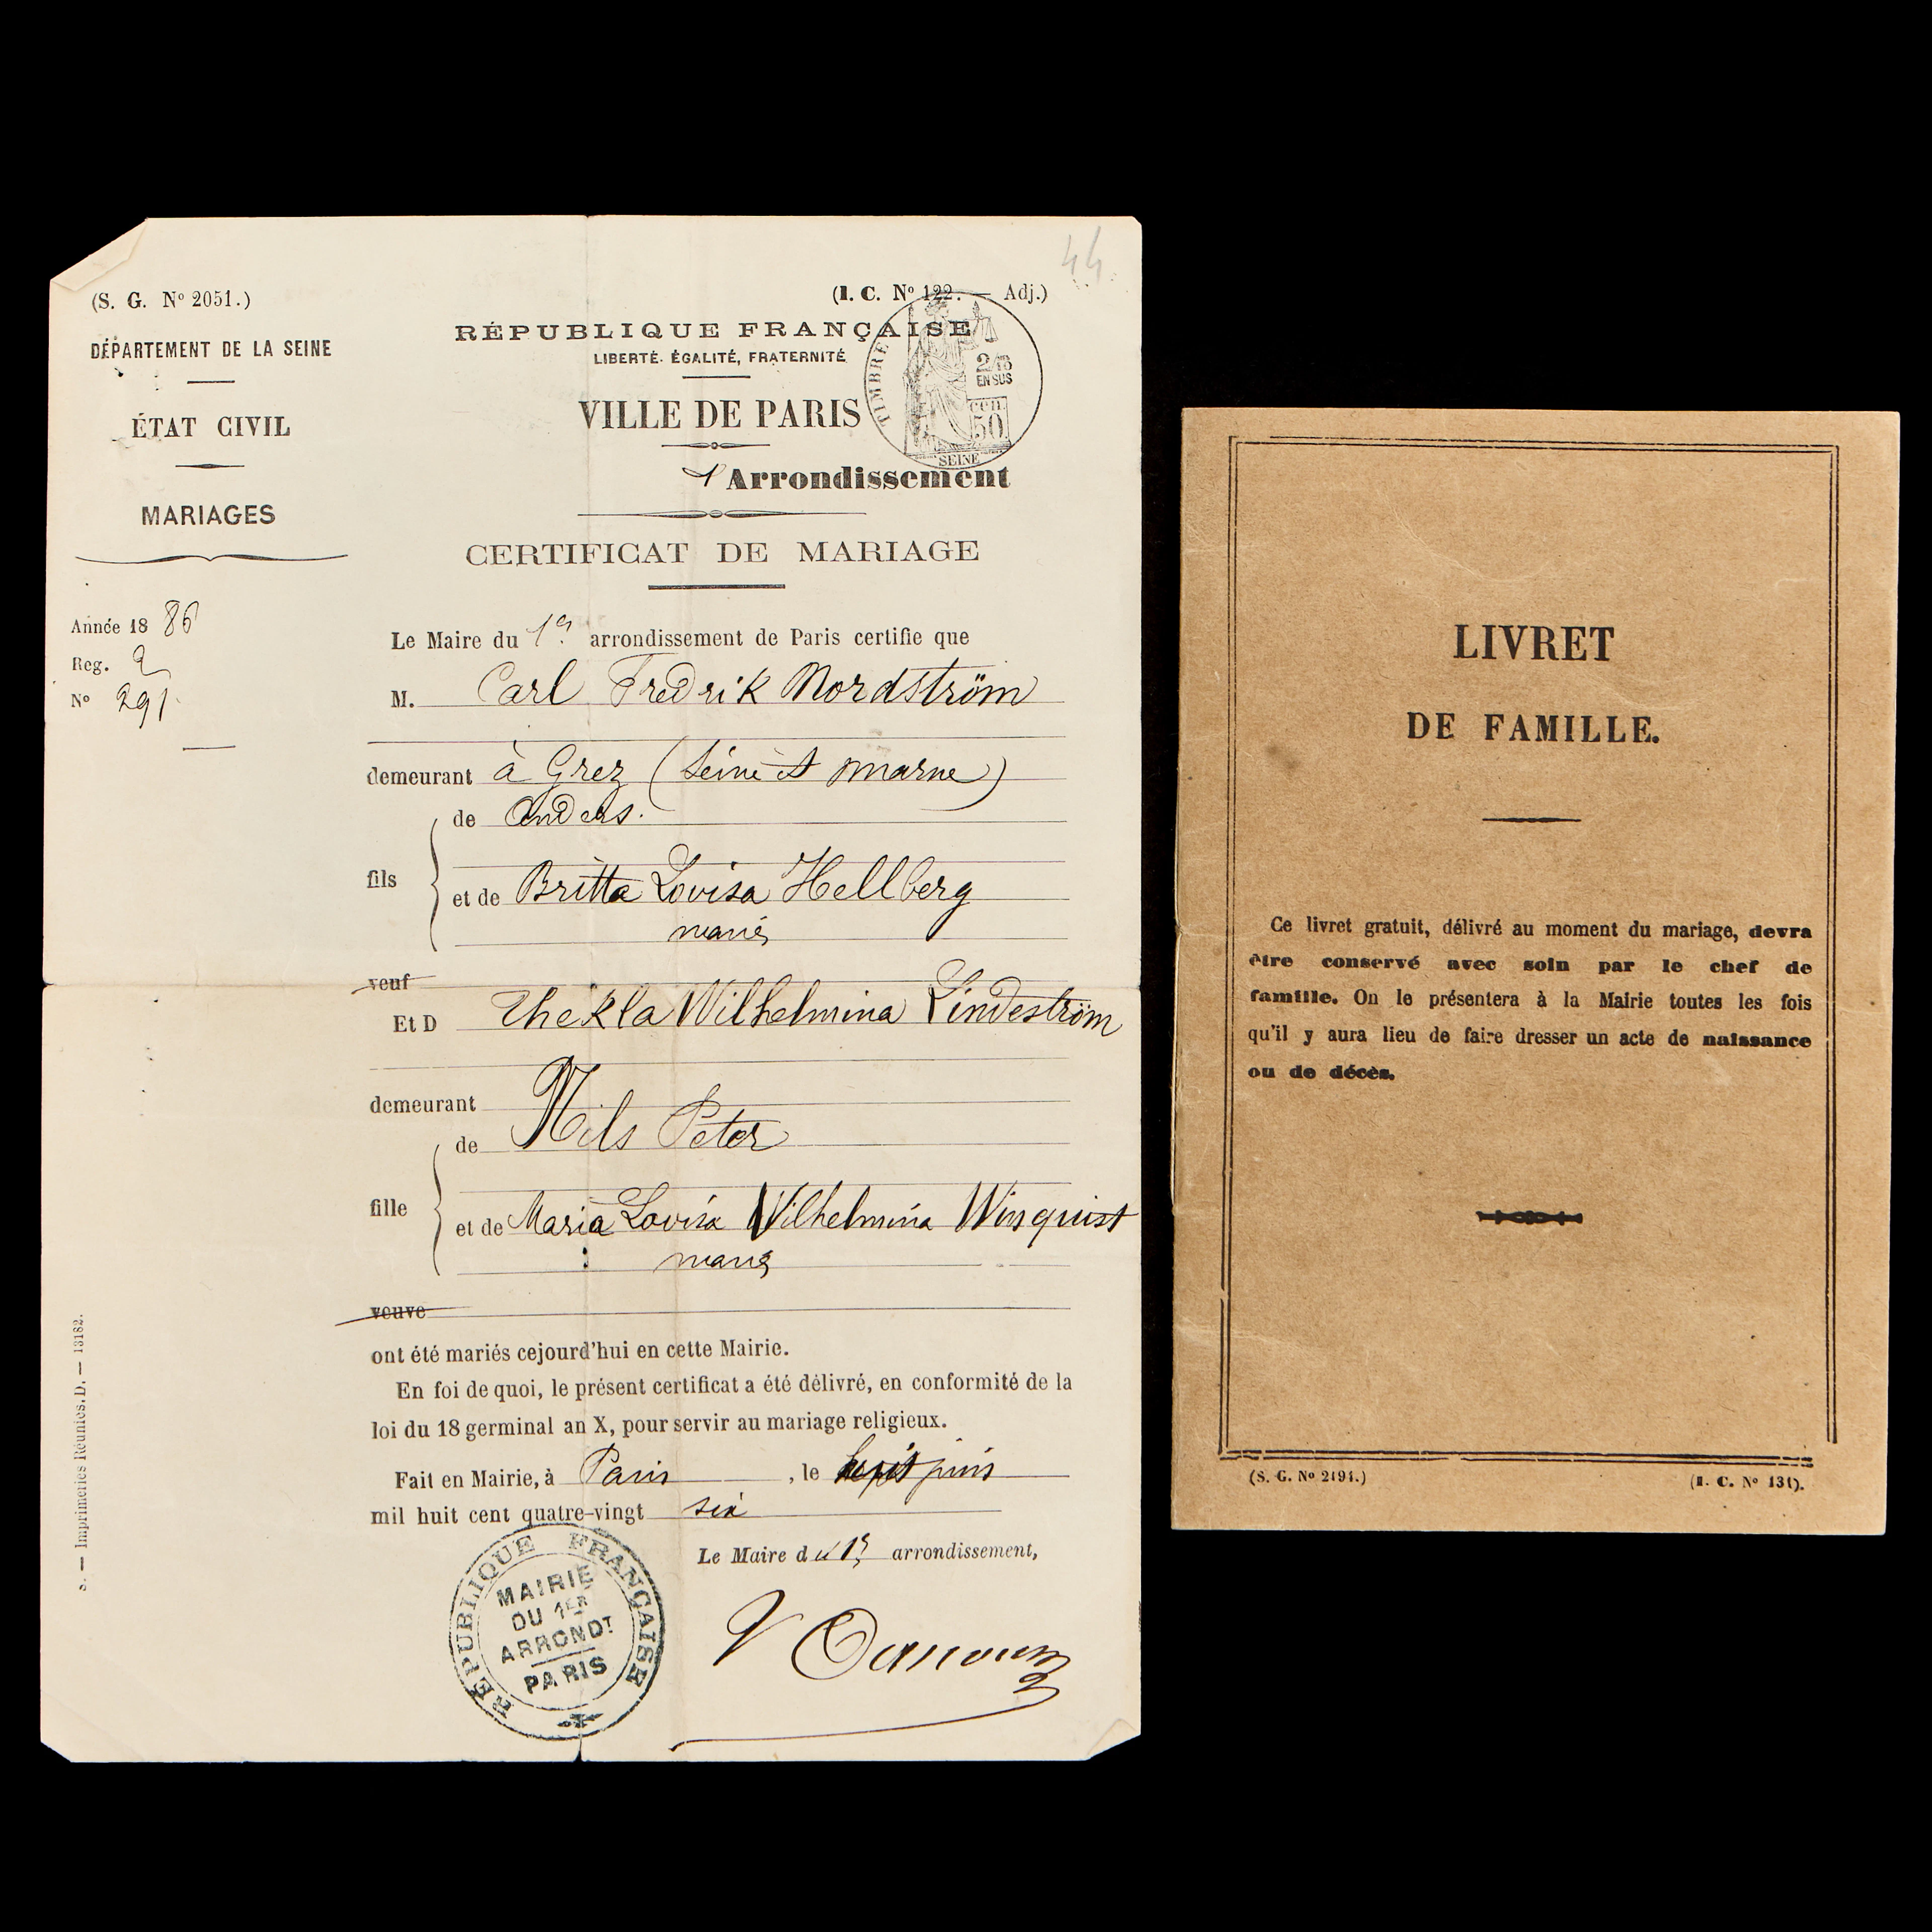 44
(S. G. Nº 2051.)
(I. C. Nº 122. — Adj.)
DÉPARTEMENT DE LA SEINE
ÉTAT CIVIL
MARIAGES
RÉPUBLIQUE FRANÇAISE
LIBERTÉ. ÉGALITÉ, FRATERNITÉ
VILLE DE PARIS
TIMBRE
2/10
EN SUS
cen.
50
SEINE
Arrondissement
CERTIFICAT DE MARIAGE
Année 18 86
Reg. 2
Nº 291
Le Maire du 1er arrondissement de Paris certifie que
M. Carl Fredrik Nordström
demeurant à Grez (Seine et Marne)
de Anders.
fils
et de Britta Lovisa Hellberg
mariés
veuf
Et D Thekla Wilhelmina Lindeström
demeurant
de Nils Peter
fille
et de Maria Lovisa Wilhelmina Winquist
mariés
veuve
ont été mariés cejourd'hui en cette Mairie.
En foi de quoi, le présent certificat a été délivré, en conformité de la
loi du 18 germinal an X, pour servir au mariage religieux.
Fait en Mairie, à Paris, le juin
mil huit cent quatre-vingt six
Le Maire du 1er arrondissement,
RÉPUBLIQUE FRANÇAISE
MAIRIE
DU 1ER
ARRONDT
PARIS
S. — Imprimeries Réunies. D. — 13182.
LIVRET
DE FAMILLE.
Ce livret gratuit, délivré au moment du mariage, devra
être conservé avec soin par le chef de
famille. On le présentera à la Mairie toutes les fois
qu'il y aura lieu de faire dresser un acte de naissance
ou de décès.
(S. G. Nº 2194.)
(I. C. Nº 131).